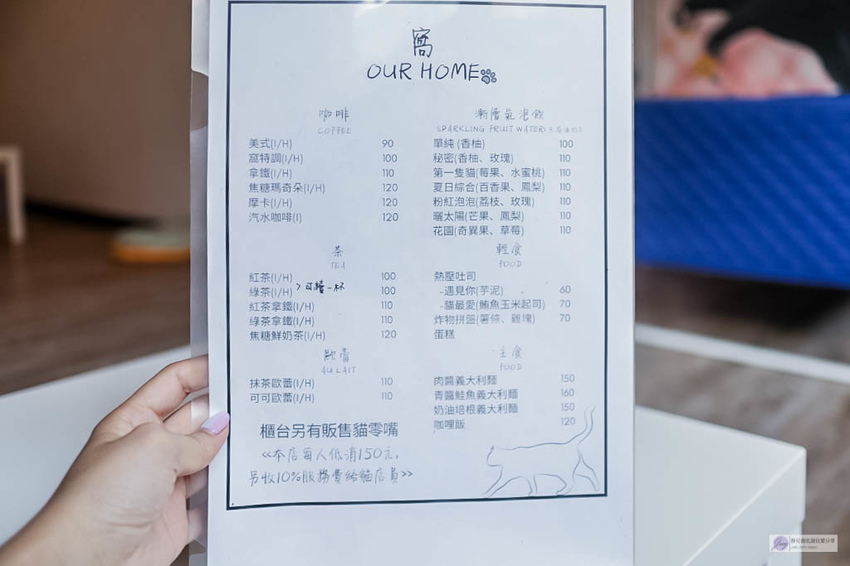 窩
OUR HOME
咖啡
COFFEE
美式(I/H) 90
窩特調(I/H) 100
拿鐵(I/H) 110
焦糖瑪奇朵(I/H) 120
摩卡(I/H) 120
汽水咖啡(I) 120
茶
TEA
紅茶(I/H) 100
綠茶(I/H) 100
>可續一杯
紅茶拿鐵(I/H) 110
綠茶拿鐵(I/H) 110
焦糖鮮奶茶(I/H) 120
歐蕾
AU LAIT
抹茶歐蕾(I/H) 110
可可歐蕾(I/H) 110
櫃台另有販售貓零嘴
<<本店每人低消150元,
另收10%服務費給貓店員>>
漸層氣泡飲
SPARKLING FRUIT WATER
單純(香柚) 100
秘密(香柚、玫瑰) 110
第一隻貓(莓果、水蜜桃) 110
夏日綜合(百香果、鳳梨) 110
粉紅泡泡(荔枝、玫瑰) 110
曬太陽(芒果、鳳梨) 110
花園(奇異果、草莓) 110
輕食
FOOD
熱壓吐司
-遇見你(芋泥) 60
-貓最愛(鮪魚玉米起司) 70
炸物拼盤(薯條、雞塊) 70
蛋糕
主食
FOOD
肉醬義大利麵 150
青醬鮭魚義大利麵 160
奶油培根義大利麵 150
咖哩飯 120